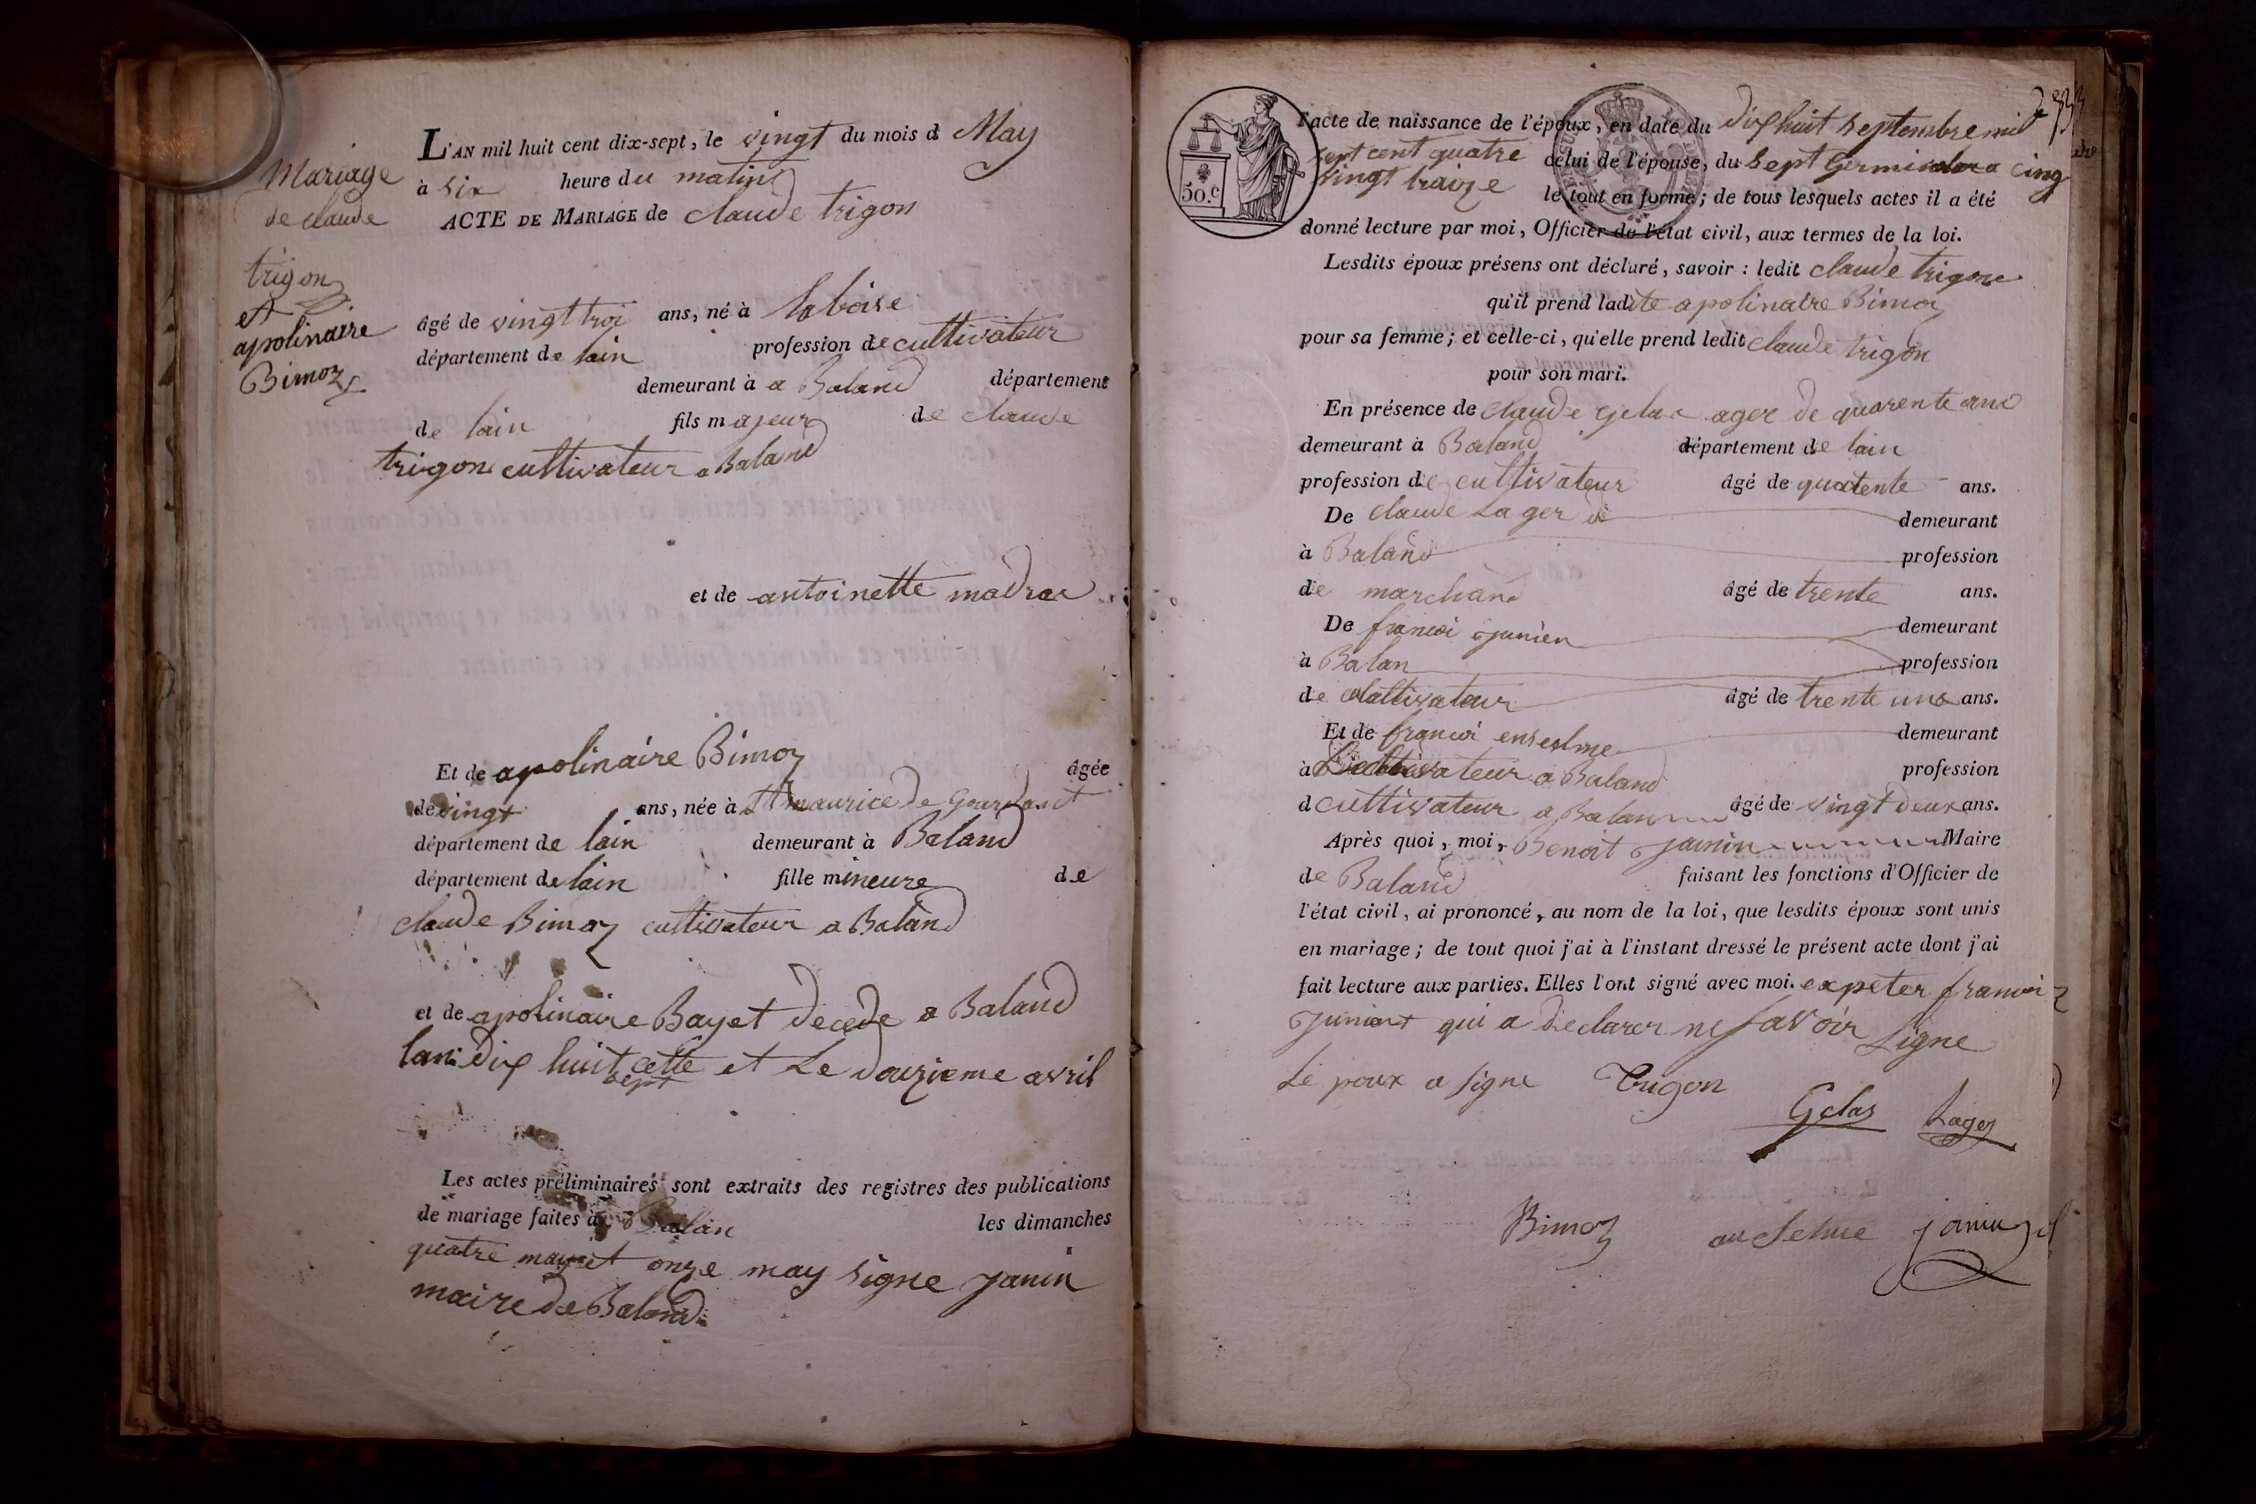 Mariage
de claude
trigon
et
apolinaire
Bimoz
L'AN mil huit cent dix-sept, le vingt du mois d May
à six heure du matin
ACTE DE MARIAGE de claude trigon
âgé de vingt troi ans, né à laboise
département de lain profession de cultivateur
demeurant à a Baland département
de lain fils majeur de claude
trigon cultivateur a Baland
et de antoinette
Et de apolinaire Bimoz âgée
de vingt ans, née à St maurice de
département de lain demeurant à Baland
département de lain fille mineure de
claude Bimoz cultivateur a Baland
et de apolinaire Bayet decede a Baland
lan dix huit cette et Le douzieme avril
sept
Les actes préliminaires sont extraits des registres des publications
de mariage faites à Balan les dimanches
quatre may et onze may signe janin
maire de Baland
50.c
l'acte de naissance de l'époux, en date du dix huit septembre mil
sept cent quatre celui de l'épouse, du sept cinq
vingt traize le tout en forme; de tous lesquels actes il a été
donné lecture par moi, Officier de l'état civil, aux termes de la loi.
Lesdits époux présens ont déclaré, savoir : ledit claude trigon
qu'il prend ladite apolinaire Bimoz
pour sa femme; et celle-ci, qu'elle prend ledit claude trigon
pour son mari.
En présence de claude gelas ager de quarente ans
demeurant à Baland département de lain
profession de cultivateur âgé de quatente ans.
De claude Lager demeurant
à Baland profession
de marchand âgé de trente ans.
De francoi demeurant
à Balan profession
de âgé de trente uns ans.
Et de francoi demeurant
à a Baland profession
d cultivateur a Balan âgé de vingt deux ans.
Après quoi, moi, Benoit janin Maire
de Baland faisant les fonctions d'Officier de
l'état civil, ai prononcé, au nom de la loi, que lesdits époux sont unis
en mariage; de tout quoi j'ai à l'instant dressé le présent acte dont j'ai
fait lecture aux parties. Elles l'ont signé avec moi. expeter francoi
qui a declarer ne savoir signe
Le poux a signe Trigon
Gelas Lager
Bimoz anselme janin